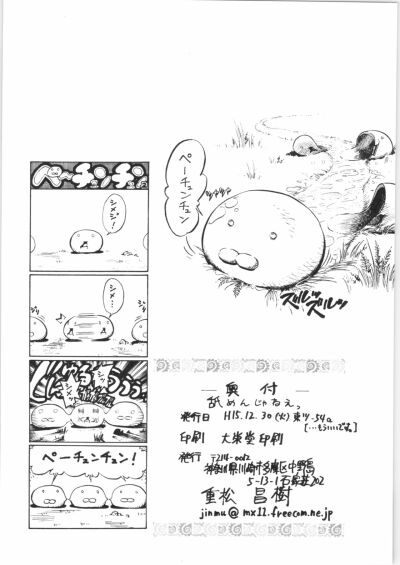 ペーチュンチュン
シメジ!
シメ…
ペーチュンチュン!
ペーチュンチュン
ズルッズルッ
— 奥付 —
舐めんじゃねぇっ
発行日 H15.12.30(火)東ツ-54a
印刷 大栄堂印刷
発行 〒214-0012
神奈川県川崎市多摩区中野島
5-13-1 202
重松 昌樹
jinmu@mx12.freecom.ne.jp